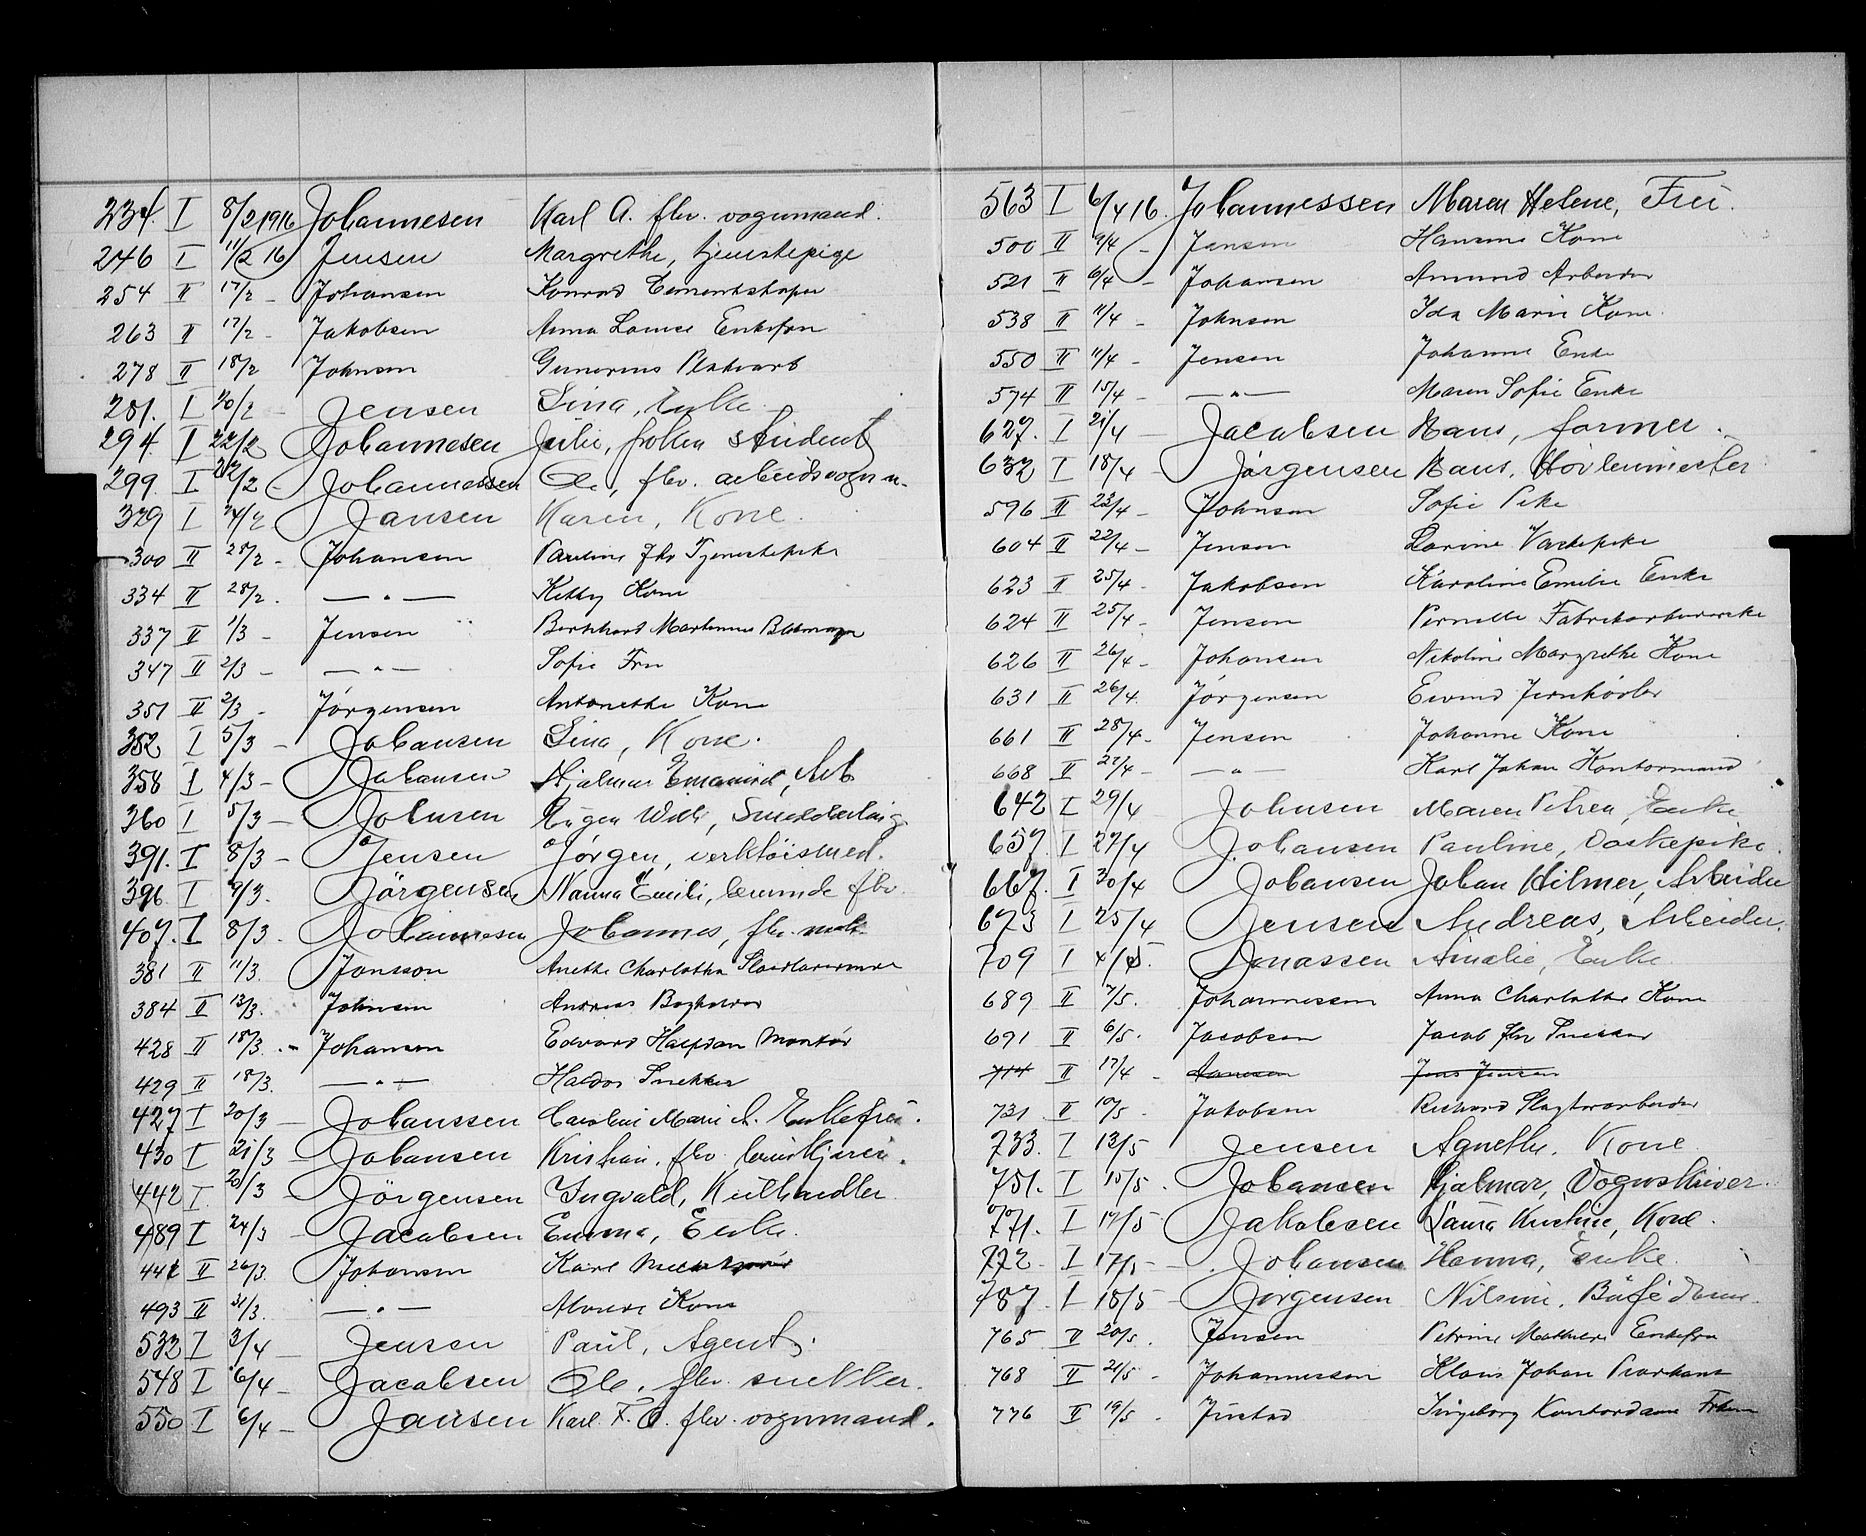 234 I 8/2 1916 Johannesen Karl A. flv. vognmand.
246 I 11/2 16 Jensen Margrethe, tjenestepige
254 II 17/2 - Johansen Konrad Cementstøper
263 II 17/2 - Jakobsen Anna Louise Enkefru
278 II 18/2 Johnsen Gunerius
281. I 20/2 - Jensen Lina, Enke
294. I 22/2 - Johannesen Julie, frøken student
299 I 22/2 - Johannessen Ole, flv. arbeidsvogn m.
329 I 24/2 Jansen Karen, Kone.
300 II 28/2 - Johansen Pauline flv Tjenestepike
334 II 28/2 . — " — Kitty Kone
337 II 1/3 - Jensen Bernhard Martinius
347 II 2/3 - — " — Sofie Fru
351 II 2/3 - Jørgensen Antonette Kone
352 I 5/3 - Johansen Lina, Kone.
358 I 4/3 - Johansen Hjalmar Emanuel, Arb
360 I 5/3 - Johnsen Smedlærling
391. I 8/3 - Jensen Jørgen, verktøismed.
396 I 9/3. Jörgensen Nanna Emilie, flv.
407. I 8/3 . Johannesen Johannes, flv.
381 II 11/3. Jonsson Anette Charlotha
384 II 13/3. Johnsen Andreas Bagholder
428 II 18/3. - Johansen Edvard Halfdan Montør
429 II 18/3. — " — Haldor Snekker
427 I 20/3 - Johanssen Caroline Marie A. Enkefru.
430 I 21/3 - Johansen Kristian, flv.
442 I. 20/3 - Jörgensen Ingvald, Kulhandler
489 I 24/3 - Jacobsen Emma, Enke.
442 II 26/3. Johansen Karl
493 II 31/3. — " — Kone
532 I 3/4 Jensen Paul, Agent.
548 I 6/4 - Jacobsen Ole, flv. snekker.
550 I 6/4 - Jansen Karl F. O. flv. vognmand.
563 I 6/4 16. Johannessen Maren Helene, Fru.
500 II 9/4 - Jensen Hansine Kone
521 II 6/4 - Johansen Amund Arbeider
538 II 11/4 - Johnsen Ida Marie Kone
550 II 11/4 - Jensen Johanne Enke
574 II 15/4 - — " — Maren Sofie Enke
627. I 21/4 - Jacobsen Hans, former.
632 I 18/4 - Jørgensen Hans, Høvlemester
596 II 23/4 - Johnsen Sofie Pike
604 II 22/4 - Jensen Lorine Vaskepike
623 II 25/4 - Jakobsen Karoline Emilie Enke
624 II 25/4 - Jensen Pernille Fabrikarbeiderske
626 II 26/4 - Johansen Nikoline Margrethe Kone
631 II 26/4. Jørgensen Eivind Jernhøvler
661 II 28/4 - Jensen Johanne Kone
668 II 27/4 - — " — Karl Johan Kontormand
642 I 29/4 Johnsen Maren Petrea, Enke
657 I 27/4 Johansen Pauline, Vaskepike.
667. I 30/4 Johansen Johan Hilmer, Arbeider
673 I 25/4 Jensen Andreas, Arbeider.
709 I 4/5. Jonassen Amalie, Enke.
689 II 7/5. Johannessen Anna Charlotte Kone
691 II 6/5. Jacobsen Jacob flv Snekker
714 II 17/4 - Jens Jensen
731 II 10/5. Jakobsen Richard Slagterarbeider
733. I 13/5 Jensen Agnethe, Kone
751. I 15/5. Johansen Hjalmar, Vognskriver.
771. I 17/5 Jakobsen Laura Kristine, Kone.
772 - I 17/5 - Johansen Hanna, Enke.
787. I 18/5 - Jørgensen Nilsine, Büfedame.
765 II 20/5. Jensen Petrine Mathilde Enkefru
768 II 21/5 - Johannessen Klaus Johan
776 II 19/5 - Justad Ingeborg Kontordame Frøken